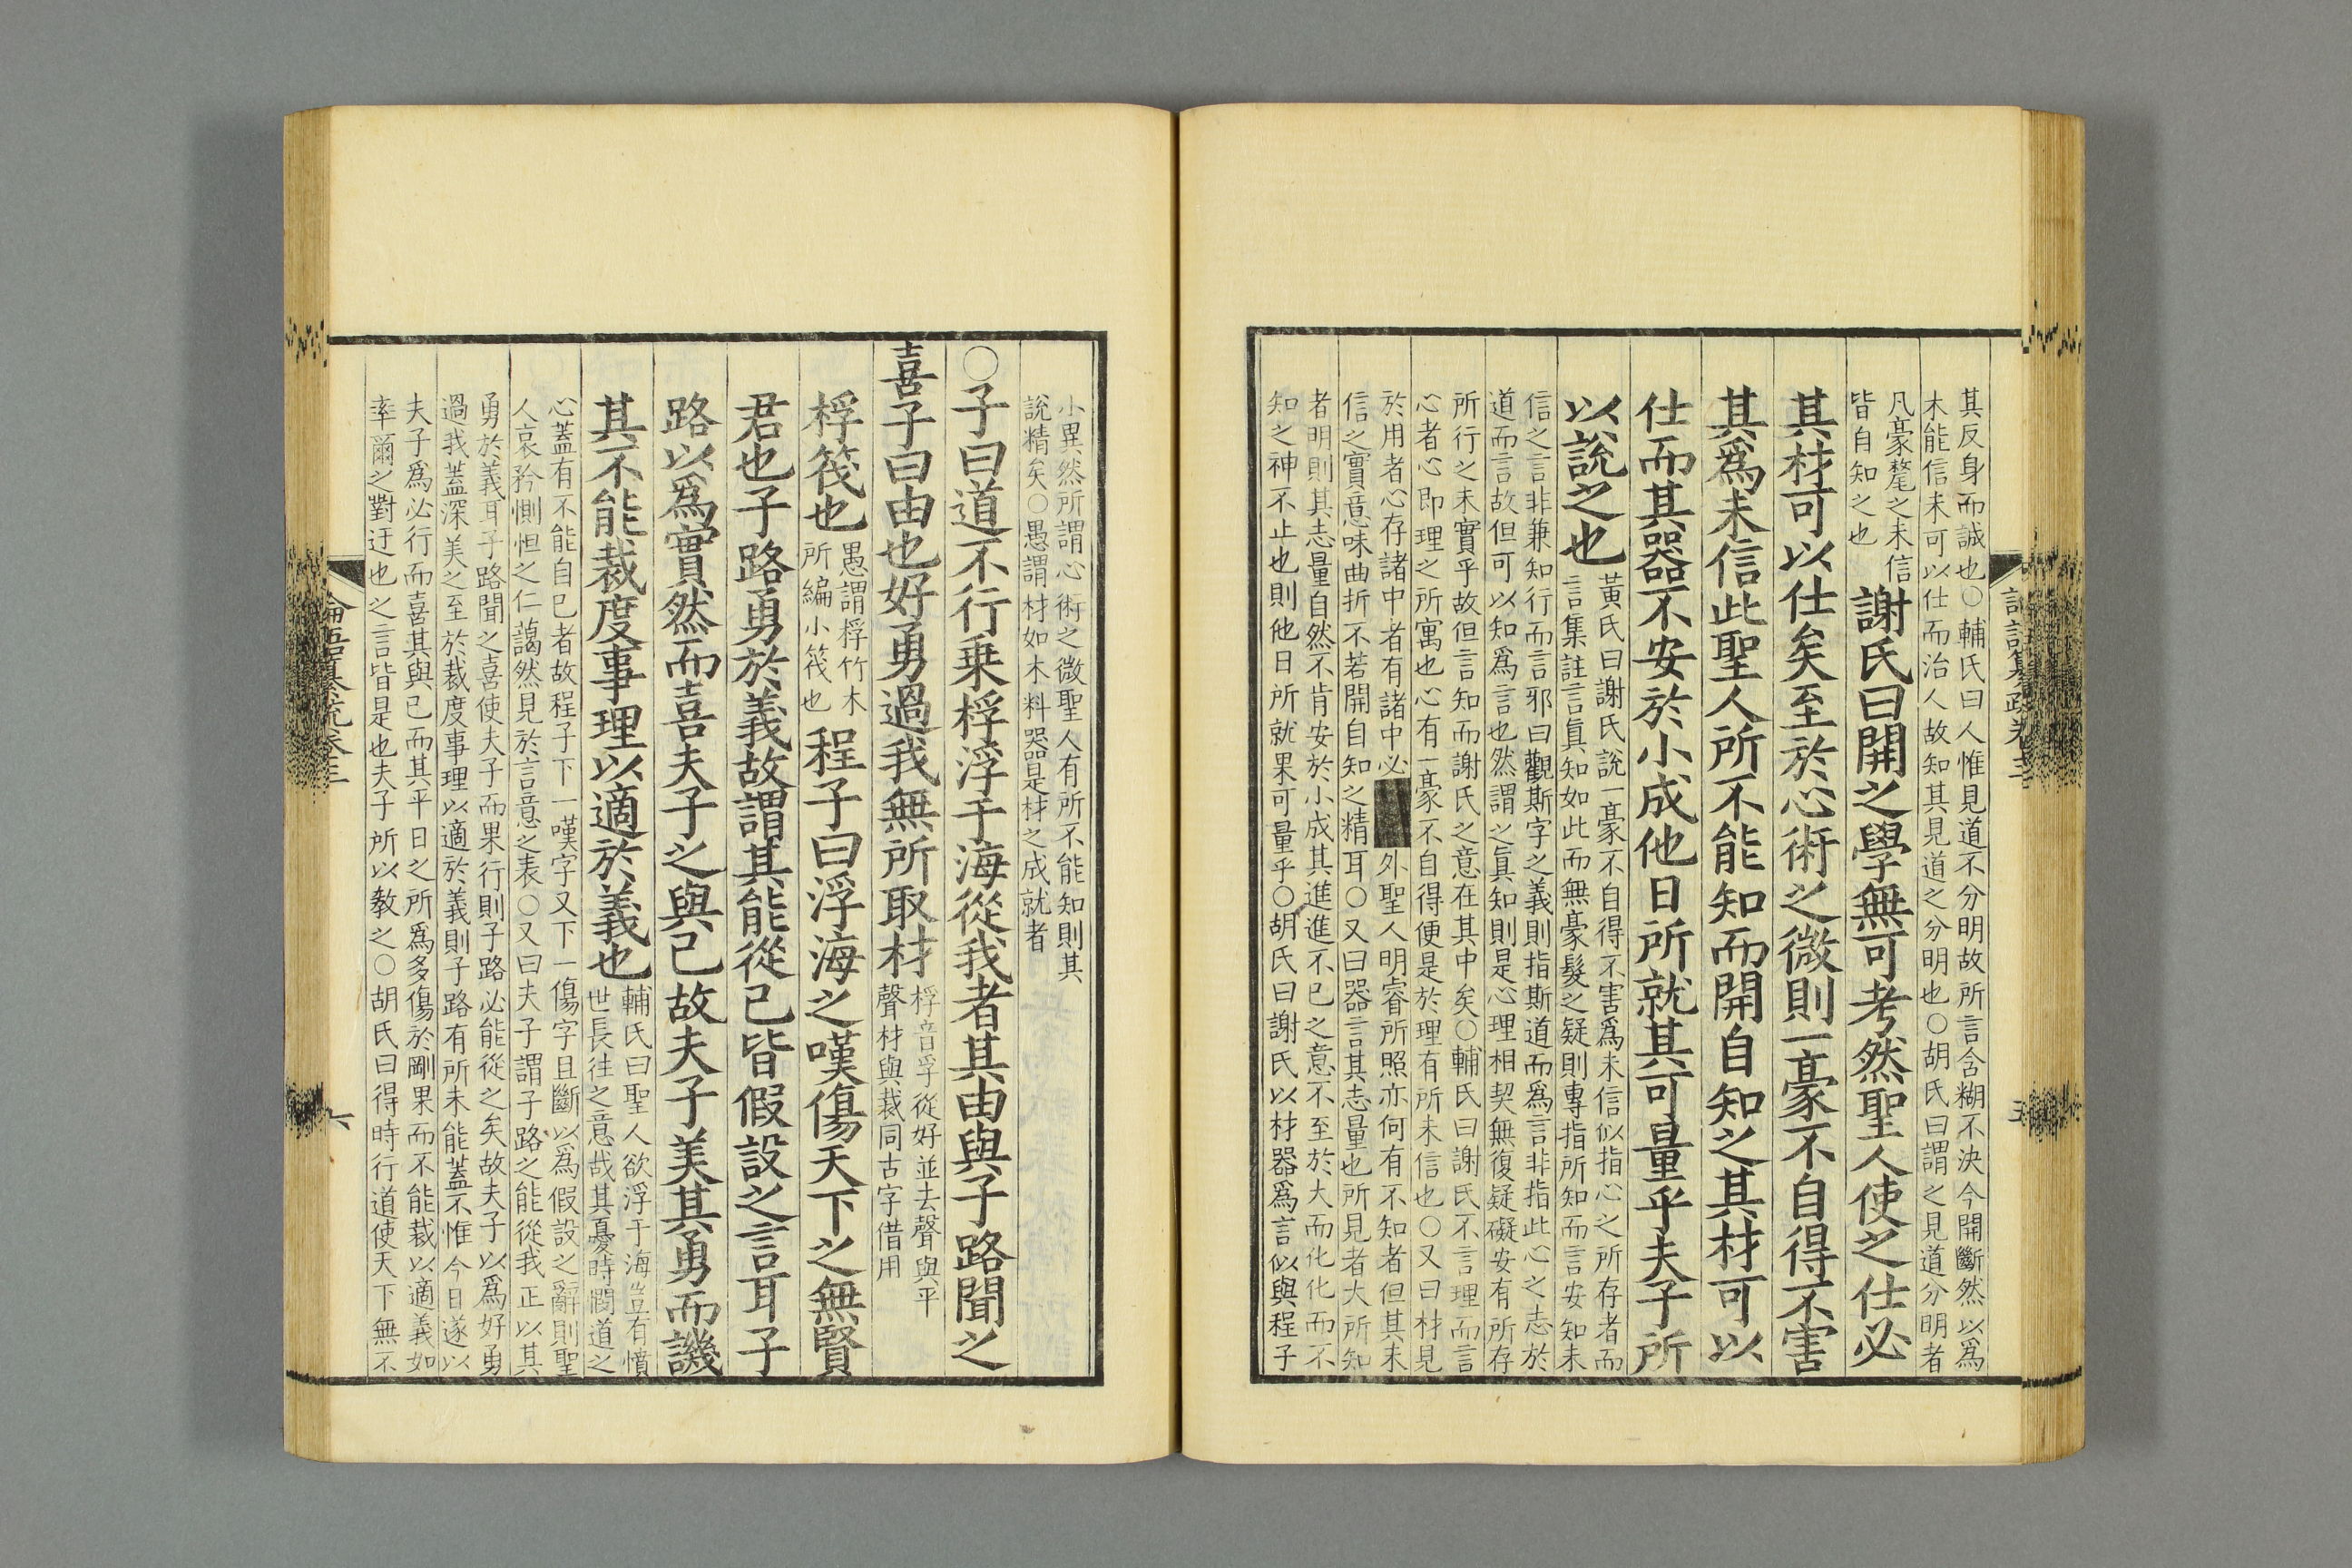 其反身而誠也○輔氏曰人惟見道不分明故所言含糊不決今開斷然以爲
未能信未可以仕而治人故知其見道之分明也○胡氏曰謂之見道分明者
凡豪氂之未信
皆自知之也
謝氏曰開之學無可考然聖人使之仕必
其材可以仕矣至於心術之微則一豪不自得不害
其爲未信此聖人所不能知而開自知之其材可以
仕而其器不安於小成他日所就其可量乎夫子所
以說之也
黃氏曰謝氏說一豪不自得不害爲未信似指心之所存者而
言集註言眞知如此而無豪髮之疑則專指所知而言安知未
信之言非兼知行而言邪曰觀斯字之義則指斯道而爲言非指此心之志於
道而言故但可以知爲言也然謂之眞知則是心理相契無復疑礙安有所存
所行之未實乎故但言知而謝氏之意在其中矣○輔氏曰謝氏不言理而言
心者心即理之所寓也心有一豪不自得便是於理有所未信也○又曰材見
於用者心存諸中者有諸中必外聖人明睿所照亦何有不知者但其未
信之實意味曲折不若開自知之精耳○又曰器言其志量也所見者大所知
者明則其志量自然不肯安於小成其進進不已之意不至於大而化化而不
知之神不止也則他日所就果可量乎○胡氏曰謝氏以材器爲言似與程子
小異然所謂心術之微聖人有所不能知則其
說精矣○愚謂材如木料器是材之成就者
○子曰道不行乘桴浮于海從我者其由與子路聞之
喜子曰由也好勇過我無所取材
桴音孚從好並去聲與平
聲材與裁同古字借用
桴筏也
愚謂桴竹木
所編小筏也
程子曰浮海之嘆傷天下之無賢
君也子路勇於義故謂其能從己皆假設之言耳子
路以爲實然而喜夫子之與己故夫子美其勇而譏
其不能裁度事理以適於義也
輔氏曰聖人欲浮于海豈有憤
世長往之意哉其憂時閔道之
心蓋有不能自已者故程子下一嘆字又下一傷字且斷以爲假設之辭則聖
人哀矜惻怛之仁藹然見於言意之表○又曰夫子謂子路之能從我正以其
勇於義耳子路聞之喜使夫子而果行則子路必能從之矣故夫子以爲好勇
過我蓋深美之至於裁度事理以適於義則子路有所未能蓋不惟今日遂以
夫子爲必行而喜其與己而其平日之所爲多傷於剛果而不能裁以適義如
率爾之對迂也之言皆是也夫子所以教之○胡氏曰得時行道使天下無不
六